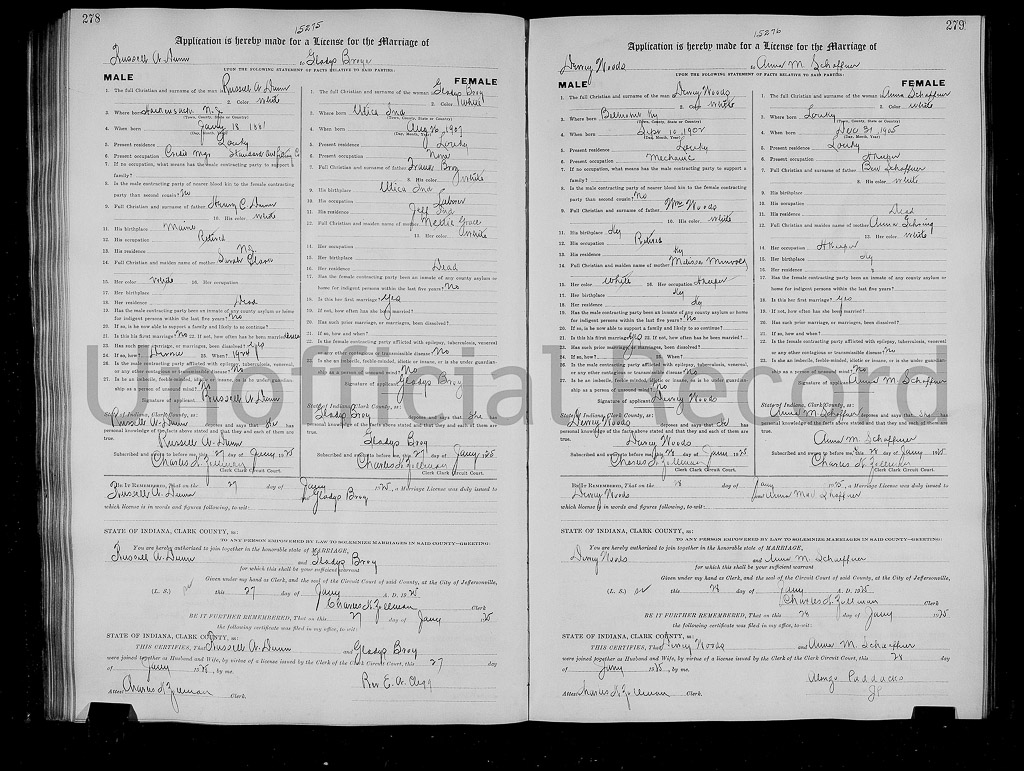 278
15275
Application is hereby made for a License for the Marriage of
Russell A. Dunn to Gladys Broy
UPON THE FOLLOWING STATEMENT OF FACTS RELATIVE TO SAID PARTIES:
MALE
1. The full Christian and surname of the man is Russell A Dunn
2. Color White
3. Where born N.J.
(Town, County, State or Country)
4. When born Jany 18
(Day, Month, Year)
5. Present residence
6. Present occupation Credit Mgr Standard
7. If no occupation, what means has the male contracting party to support a
family?
8. Is the male contracting party of nearer blood kin to the female contracting
party than second cousin? No
9. Full Christian and surname of father Henry C Dunn
10. His color White
11. His birthplace Maine
12. His occupation Retired
13. His residence N.J.
14. Full Christian and maiden name of mother Sarah
15. Her color White 16. Her occupation
17. Her birthplace
18. Her residence Dead
19. Has the male contracting party been an inmate of any county asylum or home
for indigent persons within the last five years? No
20. If so, is he now able to support a family and likely to continue?
21. Is this his first marriage? No 22. If not, how often has he been married?
23. Has such prior marriage, or marriages, been dissolved? Yes
24. If so, how? Divorce 25. When?
26. Is the male contracting party afflicted with epilepsy, tuberculosis, venereal
or any other contagious or transmissible disease? No
27. Is he an imbecile, feeble-minded, idiotic or insane, or is he under guardian-
ship as a person of unsound mind? No
Signature of applicant Russell A Dunn
State of Indiana, Clark County, ss:
Russell A. Dunn deposes and says that he has
personal knowledge of the facts above stated and that they and each of them are
true.
Russell A. Dunn
Subscribed and sworn to before me, this 27 day of Jany 1925
Charles N. Zollman
Clerk Clark Circuit Court.
FEMALE
1. The full Christian and surname of the woman is Gladys Broy
2. Color White
3. Where born Utica Ind
(Town, County, State or Country)
4. When born Aug 26, 1907
(Day, Month, Year)
5. Present residence
6. Present occupation None
7. Full Christian and surname of father Frank Broy
8. His color White
9. His birthplace Utica Ind
10. His occupation Labour
11. His residence Jeff Ind
12. Full Christian and maiden name of mother Grace
13. Her color White
14. Her occupation
15. Her birthplace
16. Her residence Dead
17. Has the female contracting party been an inmate of any county asylum or
home for indigent persons within the last five years? No
18. Is this her first marriage? Yes
19. If not, how often has she been married?
20. Has such prior marriage, or marriages, been dissolved?
21. If so, how and when?
22. Is the female contracting party afflicted with epilepsy, tuberculosis, venereal
or any other contagious or transmissible disease? No
23. Is she an imbecile, feeble-minded, idiotic, or insane, or is she under guardian-
ship as a person of unsound mind? No
Signature of applicant Gladys Broy
State of Indiana, Clark County, ss:
Gladys Broy deposes and says that she has
personal knowledge of the facts above stated and that they and each of them are
true.
Gladys Broy
Subscribed and sworn to before me, this 27 day of Jany 1925
Charles N. Zollman
Clerk Clark Circuit Court.
BE IT REMEMBERED, That on the 27 day of Jany 1925, a Marriage License was duly issued to
Russell A. Dunn to Gladys Broy
which license is in words and figures following, to-wit:
STATE OF INDIANA, CLARK COUNTY, ss:
TO ANY PERSON EMPOWERED BY LAW TO SOLEMNIZE MARRIAGES IN SAID COUNTY—GREETING:
You are hereby authorized to join together in the honorable state of MARRIAGE,
Russell A. Dunn and Gladys Broy
for which this shall be your sufficient warrant
Given under my hand as Clerk, and the seal of the Circuit Court of said County, at the City of Jeffersonville,
(L. S.) this 27 day of Jany A. D. 1925
Charles N. Zollman Clerk
BE IT FURTHER REMEMBERED, That on this 27 day of Jany 1925
the following certificate was filed in my office, to-wit:
STATE OF INDIANA, CLARK COUNTY, ss:
THIS CERTIFIES, That Russell A. Dunn and Gladys Broy
were joined together as Husband and Wife, by virtue of a license issued by the Clerk of the Clark Circuit Court, this 27 day
of Jany 1925, by me.
Rev. E. A. Clegg
Attest Charles N. Zollman Clerk.
279
15276
Application is hereby made for a License for the Marriage of
Dewey Woods to Anna M. Schaffner
UPON THE FOLLOWING STATEMENT OF FACTS RELATIVE TO SAID PARTIES:
MALE
1. The full Christian and surname of the man is Dewey Woods
2. Color White
3. Where born Ky
(Town, County, State or Country)
4. When born Sept 10, 1902
(Day, Month, Year)
5. Present residence
6. Present occupation Mechanic
7. If no occupation, what means has the male contracting party to support a
family?
8. Is the male contracting party of nearer blood kin to the female contracting
party than second cousin? No
9. Full Christian and surname of father Wm Woods
10. His color White
11. His birthplace Ky
12. His occupation Retired
13. His residence Ky
14. Full Christian and maiden name of mother
15. Her color White 16. Her occupation Hkeeper
17. Her birthplace Ky
18. Her residence Ky
19. Has the male contracting party been an inmate of any county asylum or home
for indigent persons within the last five years? No
20. If so, is he now able to support a family and likely to continue?
21. Is this his first marriage? Yes 22. If not, how often has he been married?
23. Has such prior marriage, or marriages, been dissolved?
24. If so, how? 25. When?
26. Is the male contracting party afflicted with epilepsy, tuberculosis, venereal
or any other contagious or transmissible disease? No
27. Is he an imbecile, feeble-minded, idiotic or insane, or is he under guardian-
ship as a person of unsound mind? No
Signature of applicant Dewey Woods
State of Indiana, Clark County, ss:
Dewey Woods deposes and says that he has
personal knowledge of the facts above stated and that they and each of them are
true.
Dewey Woods
Subscribed and sworn to before me, this 28 day of Jany 1925
Charles N. Zollman
Clerk Clark Circuit Court.
FEMALE
1. The full Christian and surname of the woman is Anna M Schaffner
2. Color White
3. Where born
(Town, County, State or Country)
4. When born
(Day, Month, Year)
5. Present residence
6. Present occupation Hkeeper
7. Full Christian and surname of father Ben Schaffner
8. His color White
9. His birthplace
10. His occupation
11. His residence Dead
12. Full Christian and maiden name of mother Anna
13. Her color White
14. Her occupation Hkeeper
15. Her birthplace Ky
16. Her residence
17. Has the female contracting party been an inmate of any county asylum or
home for indigent persons within the last five years? No
18. Is this her first marriage? Yes
19. If not, how often has she been married?
20. Has such prior marriage, or marriages, been dissolved?
21. If so, how and when?
22. Is the female contracting party afflicted with epilepsy, tuberculosis, venereal
or any other contagious or transmissible disease? No
23. Is she an imbecile, feeble-minded, idiotic, or insane, or is she under guardian-
ship as a person of unsound mind? No
Signature of applicant Anna M. Schaffner
State of Indiana, Clark County, ss:
Anna M Schaffner deposes and says that she has
personal knowledge of the facts above stated and that they and each of them are
true.
Anna M. Schaffner
Subscribed and sworn to before me, this 28 day of Jany 1925
Charles N. Zollman
Clerk Clark Circuit Court.
BE IT REMEMBERED, That on the 28 day of Jany 1925, a Marriage License was duly issued to
Dewey Woods and Anna Mae Schaffner
which license is in words and figures following, to-wit:
STATE OF INDIANA, CLARK COUNTY, ss:
TO ANY PERSON EMPOWERED BY LAW TO SOLEMNIZE MARRIAGES IN SAID COUNTY—GREETING:
You are hereby authorized to join together in the honorable state of MARRIAGE,
Dewey Woods and Anna M. Schaffner
for which this shall be your sufficient warrant
Given under my hand as Clerk, and the seal of the Circuit Court of said County, at the City of Jeffersonville,
(L. S.) this 28 day of Jany A. D. 1925
Charles N. Zollman Clerk
BE IT FURTHER REMEMBERED, That on this 28 day of Jany 1925
the following certificate was filed in my office, to-wit:
STATE OF INDIANA, CLARK COUNTY, ss:
THIS CERTIFIES, That Dewey Woods and Anna M. Schaffner
were joined together as Husband and Wife, by virtue of a license issued by the Clerk of the Clark Circuit Court, this 28 day
of Jany 1925, by me.
Paddacks
JP
Attest Charles N. Zollman Clerk.
Unofficial Record